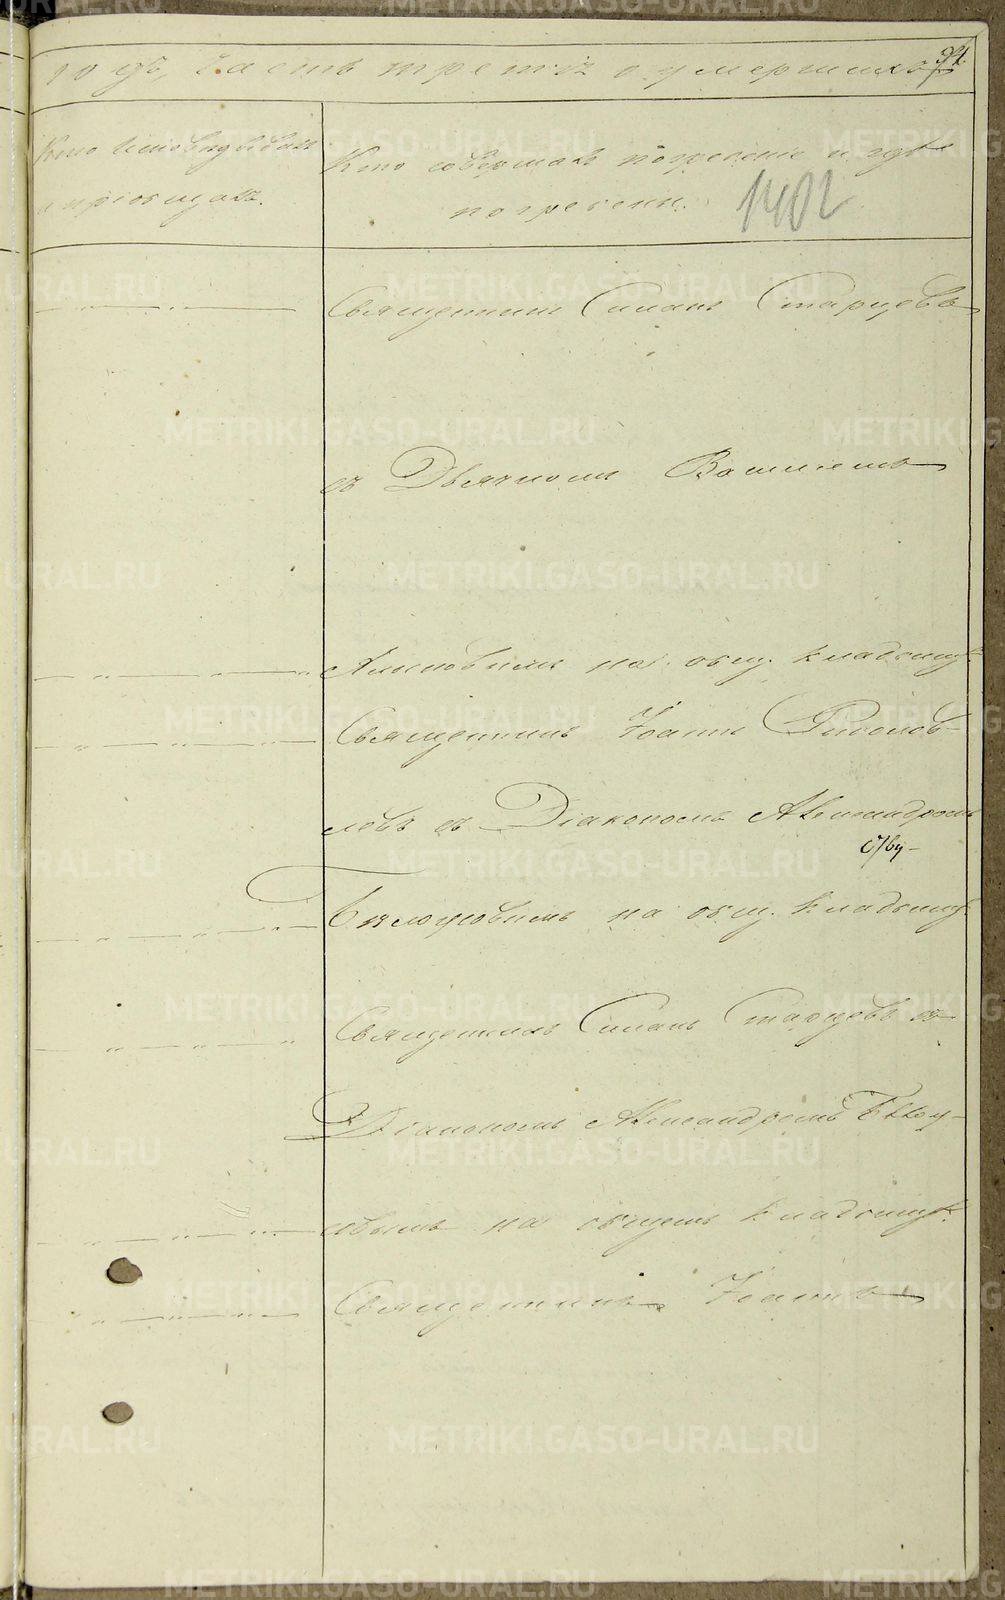 годъ, часть третiя о умершихъ
94
Кто исповѣдывалъ
и прiобщалъ.
Кто совершалъ погребенiе и гдѣ
погребены.
1402
Священникъ Симонъ Старцевъ
съ Дьякономъ Василiемъ
на общ. кладбищѣ
Священникъ Iоаннъ
съ Дiакономъ Александромъ
на общ. кладбищѣ
Священникъ Симонъ Старцевъ съ
Дiакономъ Александромъ
на общемъ кладбищѣ.
Священникъ Iоаннъ
METRIKI.GASO-URAL.RU